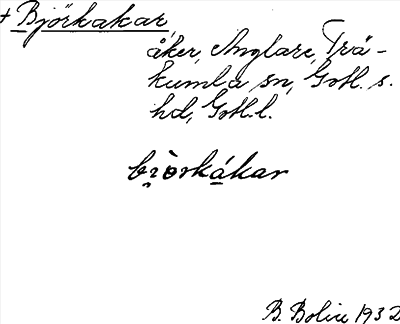 + Björkakar,
åker, Anglare, Trä-
kumla sn, Gotl. s.
hd, Gotl. l.
bi̯òrkákar
B. Bolin 1932